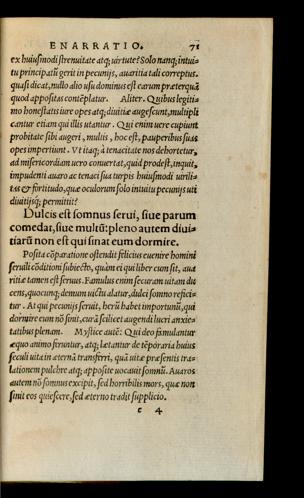 ENARRATIO. 71
ex huiusmodi strenuitate atq; uirtute? Solo nanq; intui-
tu principatũ gerit in pecunijs, auaritia tali correptus.
quasi dicat, nullo alio usu dominus est earum præterquã
quod appositas contẽplatur. Aliter. Quibus legiti-
mo honestatis iure opes atq; diuitiæ augescunt, multipli
cantur etiam qui illis utantur. Qui enim uere cupiunt
probitate sibi augeri, multis, hoc est, pauperibus suas
opes impertiunt. Vt itaq; à tenacitate nos dehortetur,
ad misericordiam uero conuertat, quid prodest, inquit,
impudenti auaro ac tenaci sua turpis huiusmodi uirili-
tas & fortitudo, quæ oculorum solo intuitu pecunijs uti
diuitijsq; permittit?
Dulcis est somnus serui, siue parum
comedat, siue multũ: pleno autem diui-
tiarũ non est qui sinat eum dormire.
Posita cõparatione ostendit felicius euenire homini
seruili cõditioni subiecto, quàm ei qui liber cum sit, aua
ritiæ tamen est seruus. Famulus enim securam uitam du
cens, quocunq; demum uictu alatur, dulci somno refici-
tur. At qui pecunijs seruit, herũ habet importunũ, qui
dormire eum nõ sinit, curã scilicet augendi lucri anxie-
tatibus plenam. Mystice autẽ: Qui deo famulantur
æquo animo feruntur, atq; lætantur de tẽporaria huius
seculi uita in æternã transferri, quã uitæ præsentis tra-
lationem pulchre atq; apposite uocauit somnũ. Auaros
autem nõ somnus excipit, sed horribilis mors, quæ non
sinit eos quiescere, sed æterno tradit supplicio.
c 4